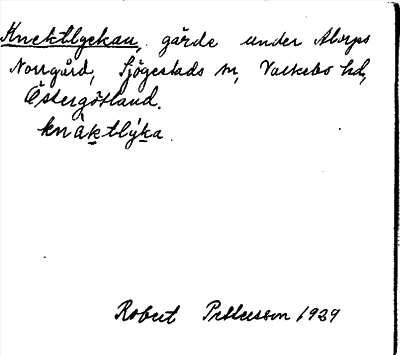 Knektlyckan, gärde under Alorps
Norrgård, Sjögestads sn, Valkebo hd,
Östergötland.
knäktlýka.
Robert Pettersson 1929